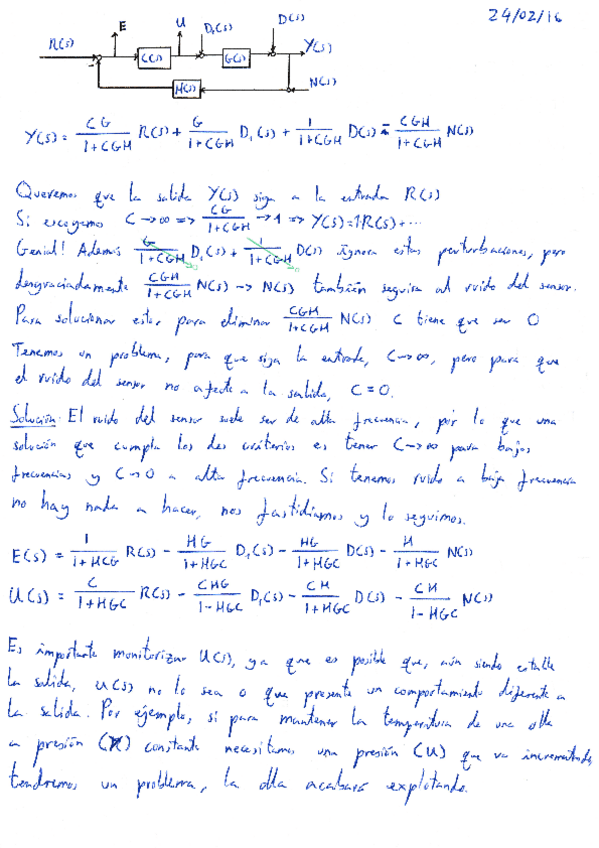 24/02/16
R(s) E C(s) U D₁(s) G(s) D(s) Y(s)
H(s) N(s)
Y(s) = CG/(1+CGH) R(s) + G/(1+CGH) D₁(s) + 1/(1+CGH) D(s) - CGH/(1+CGH) N(s)
Queremos que la salida Y(s) siga a la entrada R(s)
Si escogemos C→∞ => CG/(1+CGH) → 1 => Y(s)=1·R(s)+...
Genial! Además G/(1+CGH) D₁(s) + 1/(1+CGH) D(s) ignora estas perturbaciones, pero
desgraciadamente CGH/(1+CGH) N(s) -> N(s) también seguira al ruido del sensor.
Para solucionar esto, para eliminar CGH/(1+CGH) N(s) C tiene que ser 0
Tenemos un problema, para que siga la entrada, C→∞, pero para que
el ruido del sensor no afecte a la salida, C=0.
Solución: El ruido del sensor suele ser de alta frecuencia, por lo que una
solución que cumpla los dos criterios es tener C→∞ para bajas
frecuencias y C→0 a alta frecuencia. Si tenemos ruido a baja frecuencia
no hay nada a hacer, nos fastidiamos y lo seguimos.
E(s) = 1/(1+HCG) R(s) - HG/(1+HGC) D₁(s) - HG/(1+HGC) D(s) - H/(1+HGC) N(s)
U(s) = C/(1+HGC) R(s) - CHG/(1-HGC) D₁(s) - CH/(1+HGC) D(s) - CH/(1-HGC) N(s)
Es importante monitorizar U(s), ya que es posible que, aún siendo estable
la salida, u(s) no lo sea o que presente un comportamiento diferente a
la salida. Por ejemplo, si para mantener la temperatura de una olla
a presión constante necesitamos una presión (U) que va incrementando,
tendremos un problema, la olla acabará explotando.